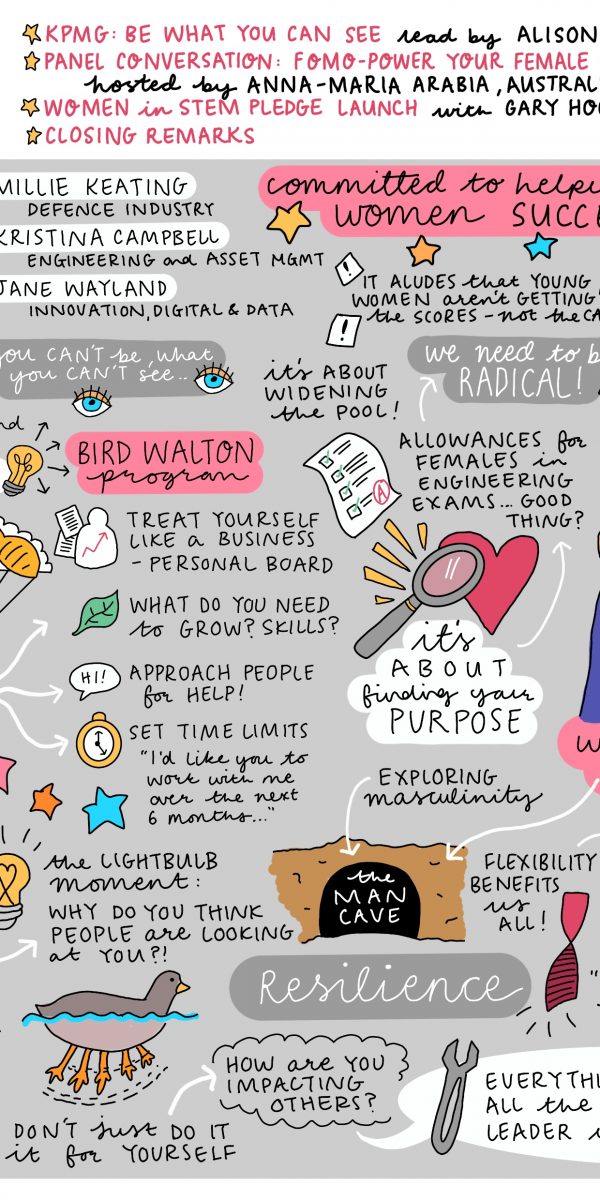 KPMG: BE WHAT YOU CAN SEE read by ALISON
PANEL CONVERSATION: FOMO-POWER YOUR FEMALE
hosted by ANNA-MARIA ARABIA, AUSTRAL
WOMEN in STEM PLEDGE LAUNCH with GARY HO
CLOSING REMARKS
MILLIE KEATING
DEFENCE INDUSTRY
KRISTINA CAMPBELL
ENGINEERING and ASSET MGMT
JANE WAYLAND
INNOVATION, DIGITAL & DATA
committed to helpi
women SUCCE
IT ALUDES that YOUNG
WOMEN aren't GETTING
the SCORES - not the CA
you CAN'T be, what
you CAN'T see...
it's ABOUT
WIDENING
the POOL!
we need to b
RADICAL!
nd
BIRD WALTON
program
ALLOWANCES for
FEMALES in
ENGINEERING
EXAMS... GOOD
THING?
A
TREAT YOURSELF
LIKE A BUSINESS
- PERSONAL BOARD
WHAT DO YOU NEED
to GROW? SKILLS?
HI!
APPROACH PEOPLE
for HELP!
it's
ABOUT
finding your
PURPOSE
SET TIME LIMITS
"I'd like you to
work with me
over the next
6 months..."
W
EXPLORING
masculinity
the LIGHTBULB
moment:
WHY DO YOU THINK
PEOPLE are LOOKING
at YOU?!
the
MAN
CAVE
FLEXIBILITY
BENEFITS
us
ALL!
Resilience
HOW are YOU
IMPACTING
OTHERS?
DON'T just DO IT
it for YOURSELF
EVERYTHI
ALL the
LEADER i